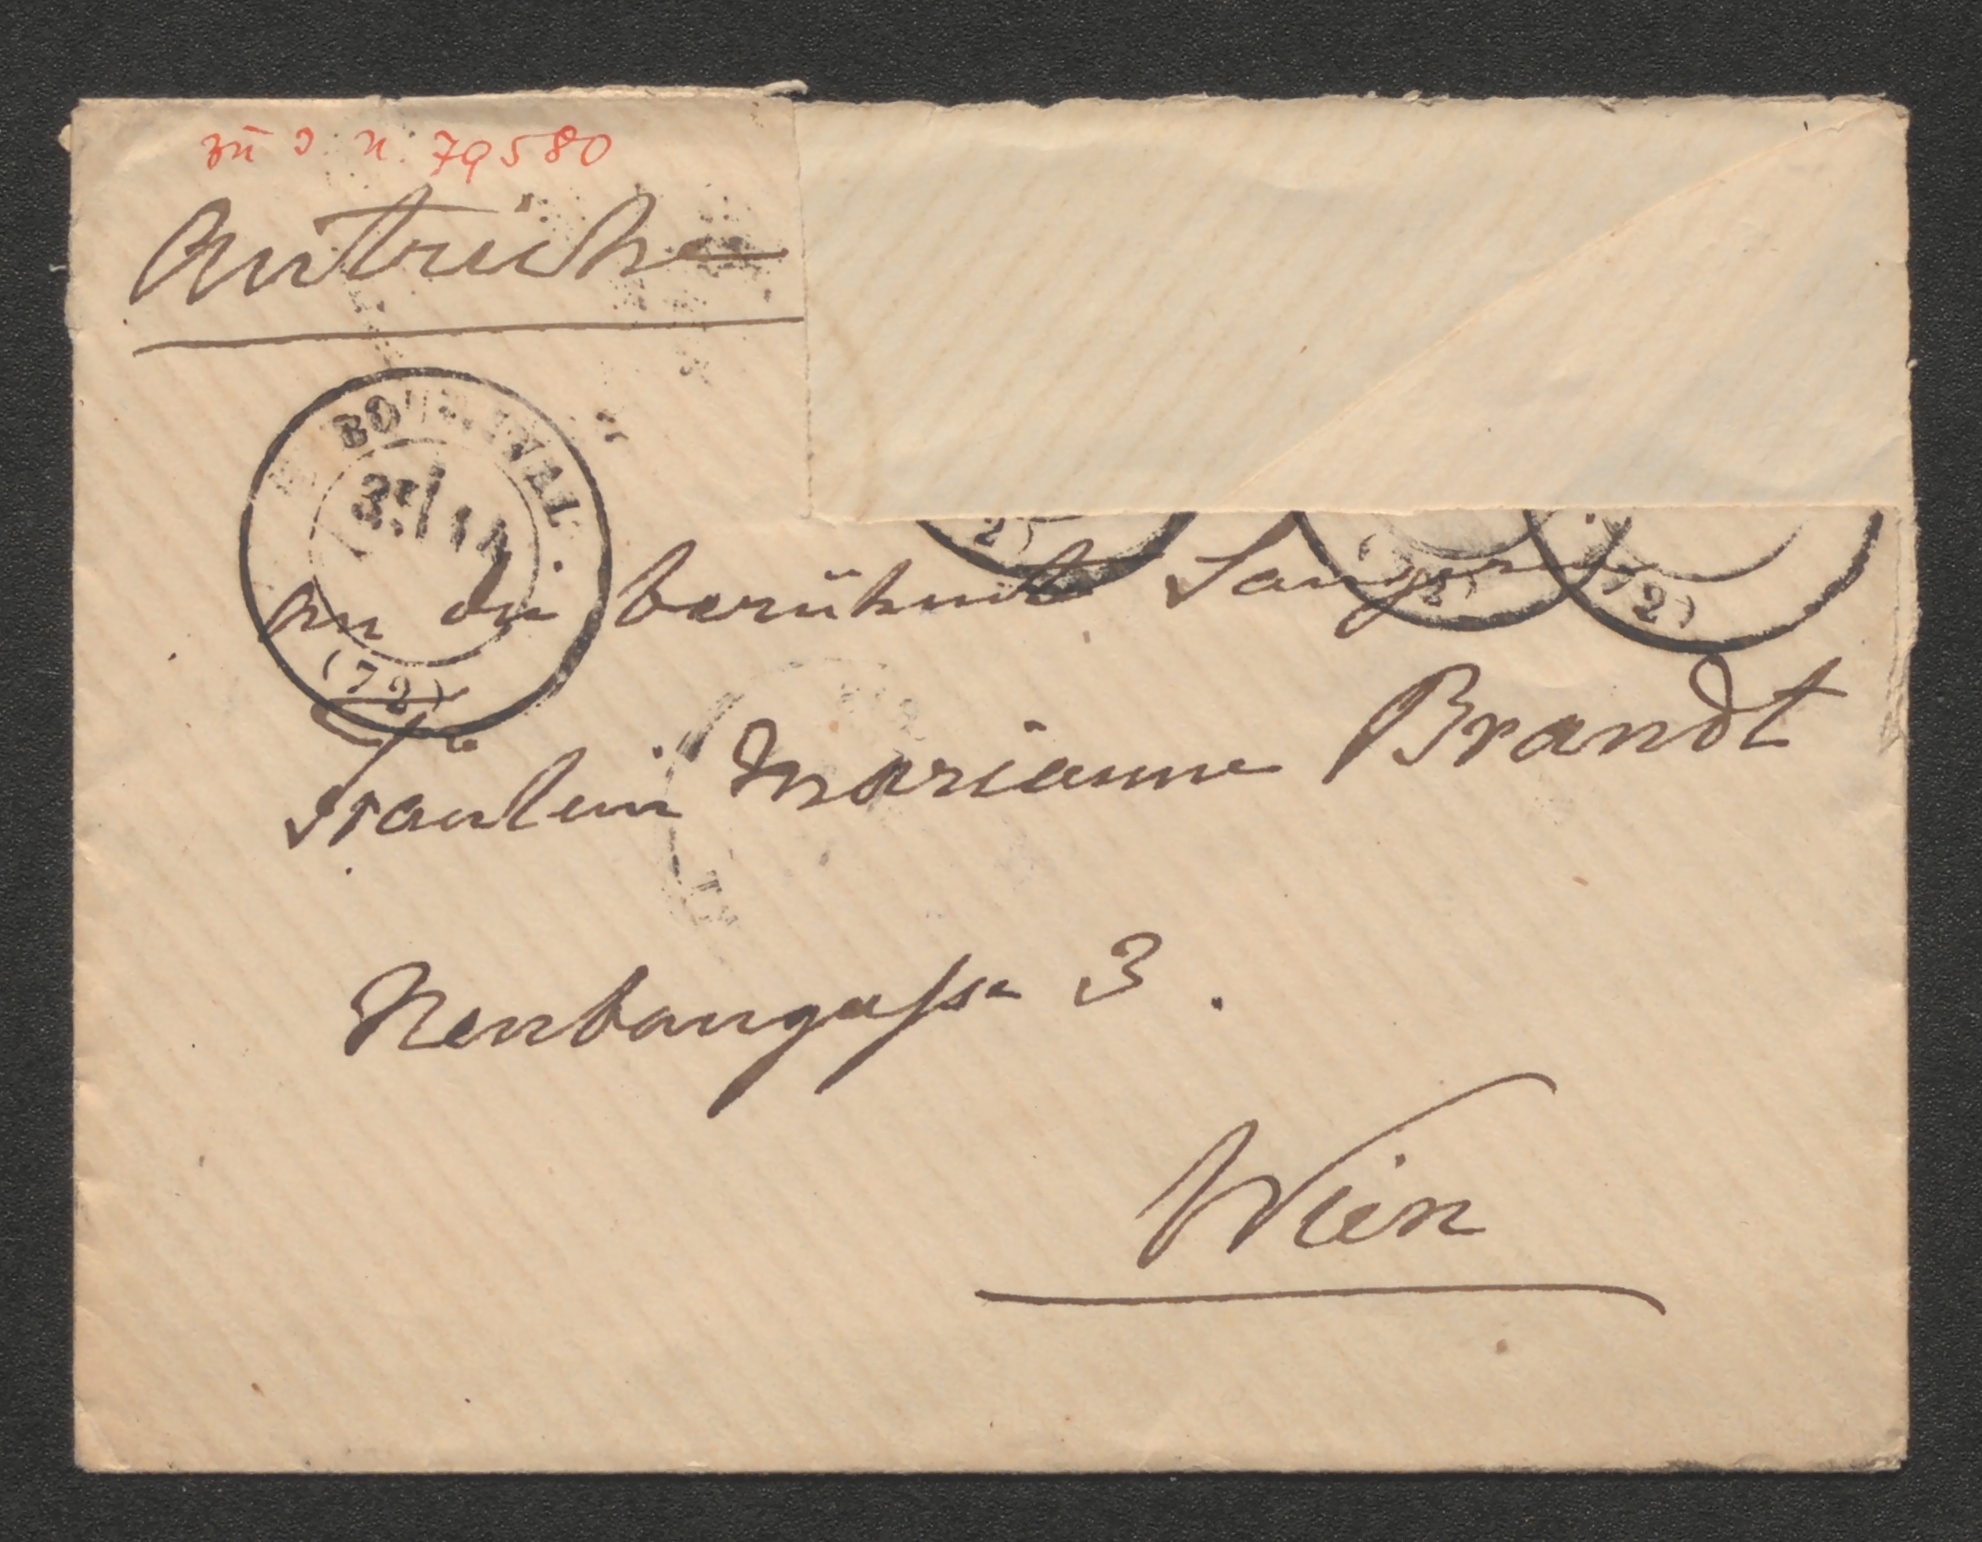 zu I. N. 79580
Autriche
BOUGIVAL
3E/ 14
(72)
2)
2)
72)
An die berühmte Sängerin
Fräulein Marianne Brandt
Neubaugasse 3.
Wien